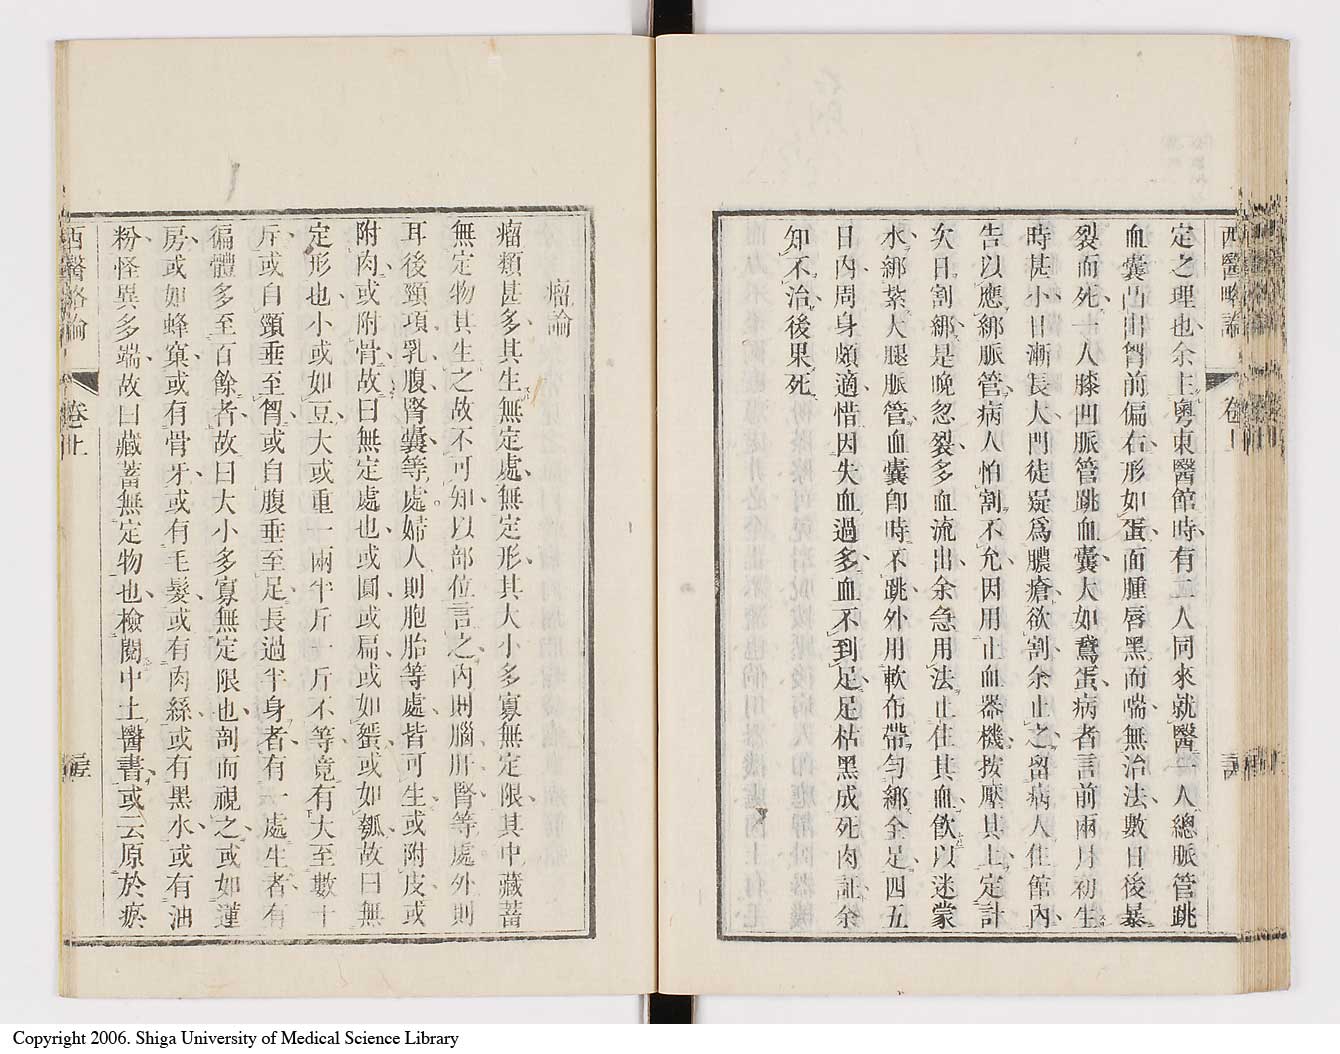 西醫略論
卷上
定之理也余主粵東醫館時有二人同來就醫一人總脈管跳
血囊凸出胷前偏右形如蛋面腫唇黑而喘無治法數日後暴
裂而死一人膝凹脈管跳血囊大如鵞蛋病者言前兩月初生
時甚小日漸長大門徒疑爲膿瘡欲割余止之留病人住館內
告以應綁脈管病人怕割不允因用止血器機按壓其上定計
次日割綁是晚忽裂多血流出余急用法止住其血飲以迷蒙
水綁紮大腿脈管血囊卽時不跳外用軟布帶勻綁全足四五
日內周身頗適惜因失血過多血不到足足枯黑成死肉証余
知不治後果死
瘤論
瘤類甚多其生無定處無定形其大小多寡無定限其中藏蓄
無定物其生之故不可知以部位言之內則腦肝腎等處外則
耳後頸項乳腹腎囊等處婦人則胞胎等處皆可生或附皮或
附肉或附骨故曰無定處也或圓或扁或如蛋或如瓠故曰無
定形也小或如豆大或重一兩半斤一斤不等竟有大至數十
斤或自頸垂至胷或自腹垂至足長過半身者有一處生者有
徧體多至百餘者故曰大小多寡無定限也剖而視之或如蓮
房或如蜂窠或有骨牙或有毛髮或有肉絲或有黑水或有油
粉怪異多端故曰藏蓄無定物也檢閱中土醫書或云原於瘀
西醫略論
卷上
Copyright 2006. Shiga University of Medical Science Library